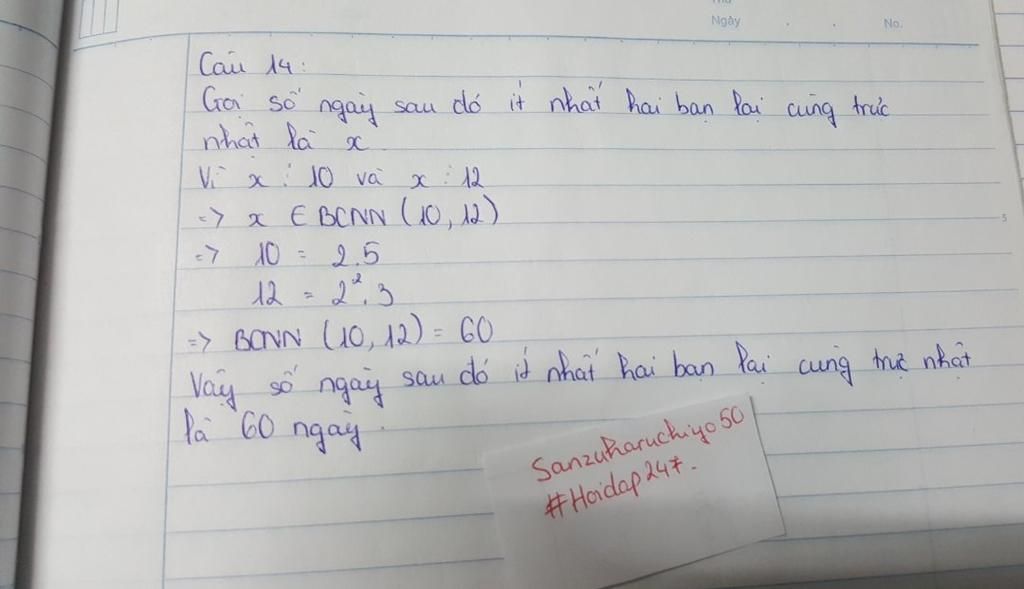 Ngày . . No.
Câu 14:
Gọi số ngày sau đó ít nhất hai bạn lại cùng trực
nhật là x
Vì x ⋮ 10 và x ⋮ 12
=> x ∈ BCNN (10, 12)
5
=> 10 = 2.5
12 = 2².3
=> BCNN (10, 12) = 60
Vậy số ngày sau đó ít nhất hai bạn lại cùng trực nhật
là 60 ngày.
Sanzuharuchiyo50
#Hoidap247.